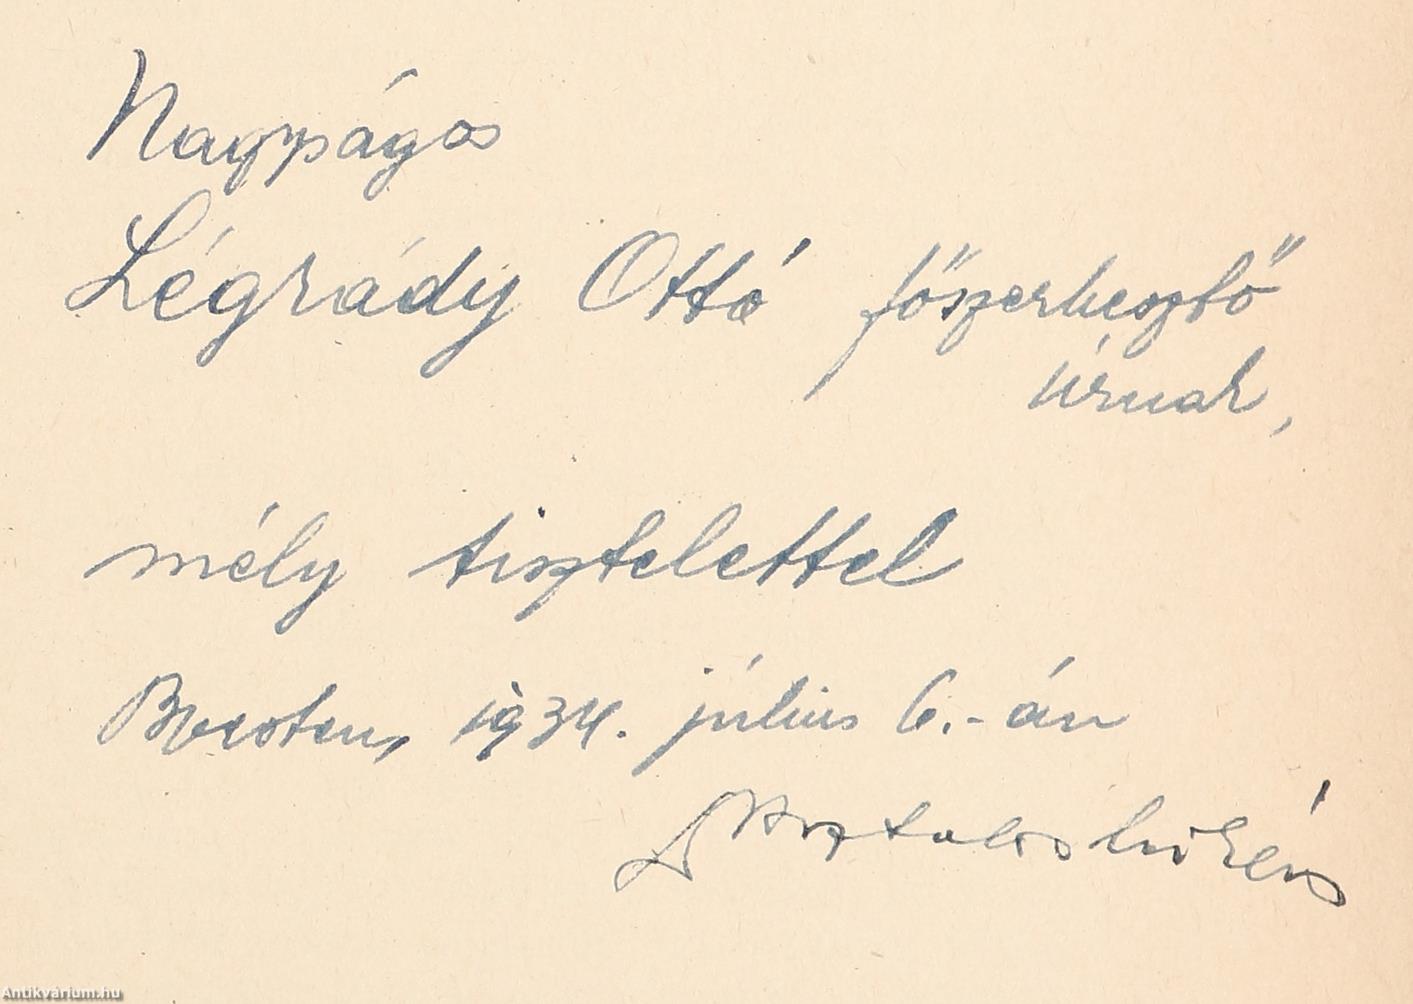 Nagyságos
Légrády Ottó főszerkesztő
úrnak,
mély tisztelettel
1934. július 6.-án
Antikvárium.hu